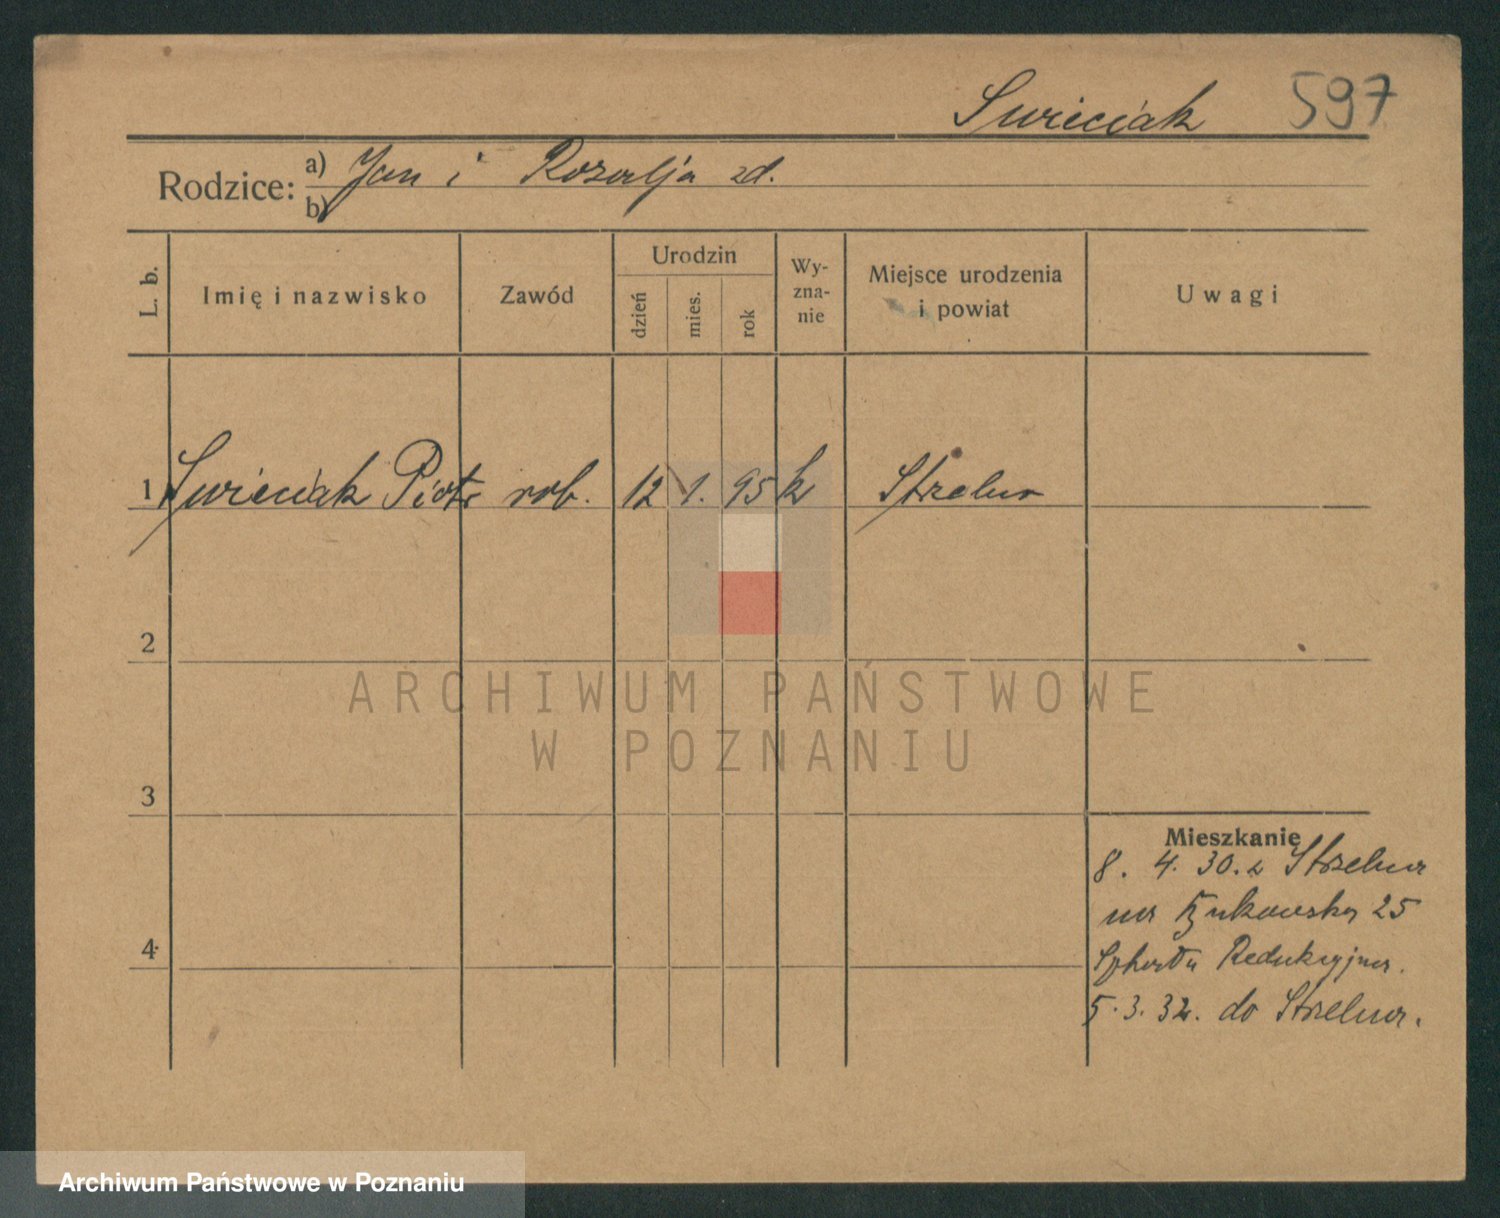 Swieciak 597
Rodzice: a) Jan i Rozalja zd.
b)
L. b. Imię i nazwisko Zawód Urodzin dzień mies. rok Wy-zna-nie Miejsce urodzenia i powiat Uwagi
1 Swieciak Piotr rob. 12 1. 95 k Strzelno
2
ARCHIWUM PAŃSTWOWE
W POZNANIU
3
Mieszkanie
8. 4. 30. z Strzelna
na 25
4
Redukcyjna.
5. 3. 32. do Strzelna.
Archiwum Państwowe w Poznaniu